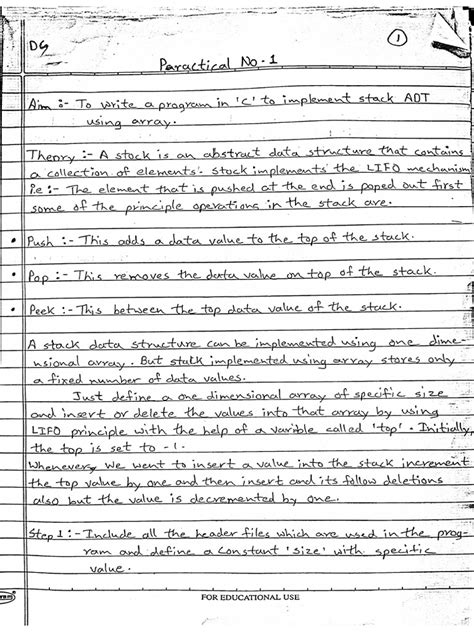 DS
1
Paractical No. 1
Aim :- To write a program in 'C' to implement stack ADT
using array.
Theory :- A stack is an abstract data structure that contains
a collection of elements. stack implements the LIFO mechanism
i.e :- The element that is pushed at the end is poped out first
some of the principle operations in the stack are.
• Push :- This adds a data value to the top of the stack.
• Pop :- This removes the data value on top of the stack.
• Peek :- This between the top data value of the stack.
A stack data structure can be implemented using one dime-
nsional array. But stack implemented using array stores only
a fixed number of data values.
Just define a one dimensional array of specific size
and insert or delete the values into that array by using
LIFO principle with the help of a varible called 'top'. Initially
the top is set to -1.
Whenever, we went to insert a value into the stack increment
the top value by one and then insert and its follow deletions
also but the value is decremented by one.
Step 1 :- Include all the header files which are used in the prog-
ram and define a constant 'size' with specific
value.
FOR EDUCATIONAL USE